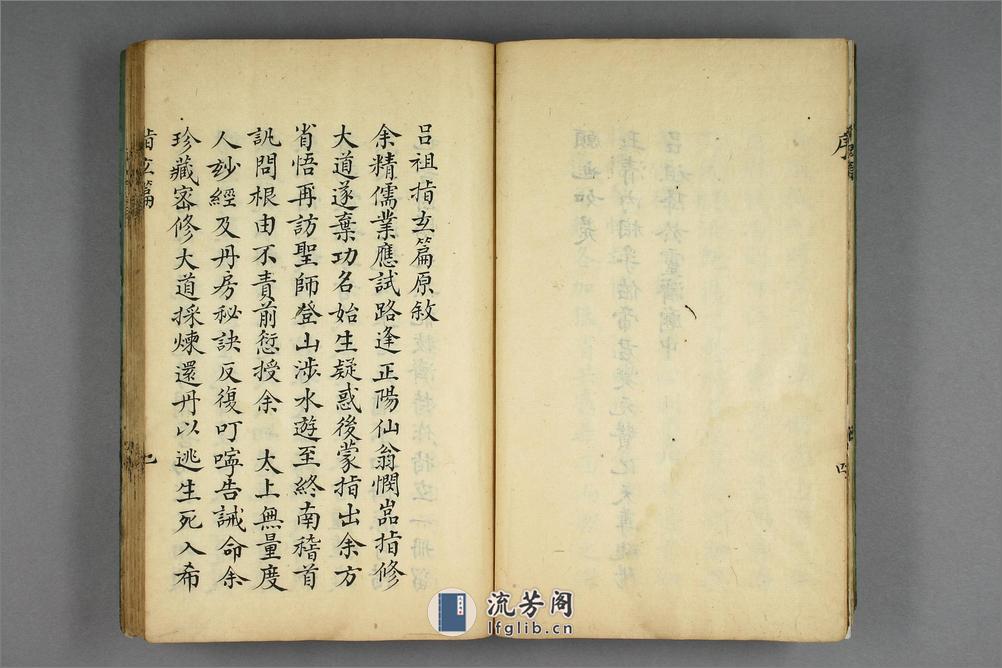 序
呂祖指玄篇原敘
余精儒業應試路逢正陽仙翁憫嵓指修
大道遂棄功名始生疑惑後蒙指出余方
省悟再訪聖師登山涉水遊至終南稽首
訊問根由不責前愆授余 太上無量度
人玅經及丹房秘訣反復叮嚀告誡命余
珍藏密修大道採煉還丹以逃生死入希
指玄篇
七
流芳阁
lfglib.cn